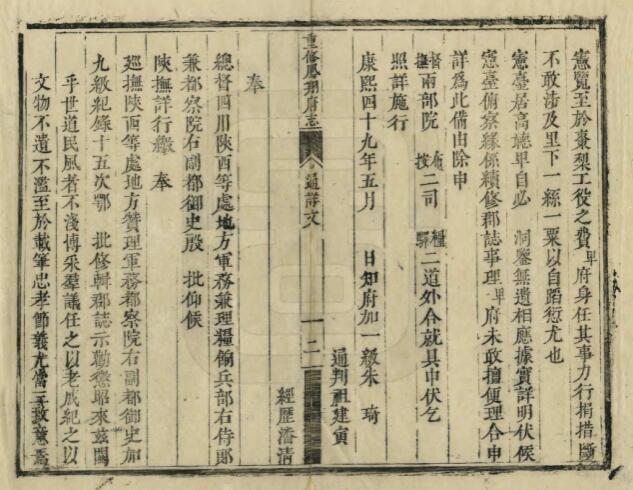 憲覽至於棗梨工役之費卑府身任其事力行捐措斷
不敢涉及里下一絲一粟以自蹈愆尤也
憲臺居高聽卑自必 洞鑒無遺相應據實詳明伏候
憲臺俯察緣係續修郡誌事理卑府未敢擅便理合申
詳為此備由除申
督撫兩部院 布按二司 糧驛二道外合就具申伏乞
照詳施行
康熙四十九年五月 日知府加一級朱 琦
通判祖建寅
經歷潘清
重修鳳翔府志
通詳文
一 二
奉
總督四川陝西等處地方軍務兼理糧餉兵部右侍郎
兼都察院右副都御史殷 批仰候
陝撫詳行繳 奉
廵撫陝西等處地方贊理軍務都察院右副都御史加
九級紀錄十五次鄂 批修輯郡誌示勸懲昭來茲關
乎世道民風者不淺博采羣議任之以老成紀之以
文物不遺不濫至於載筆忠孝節義尤當三致意焉